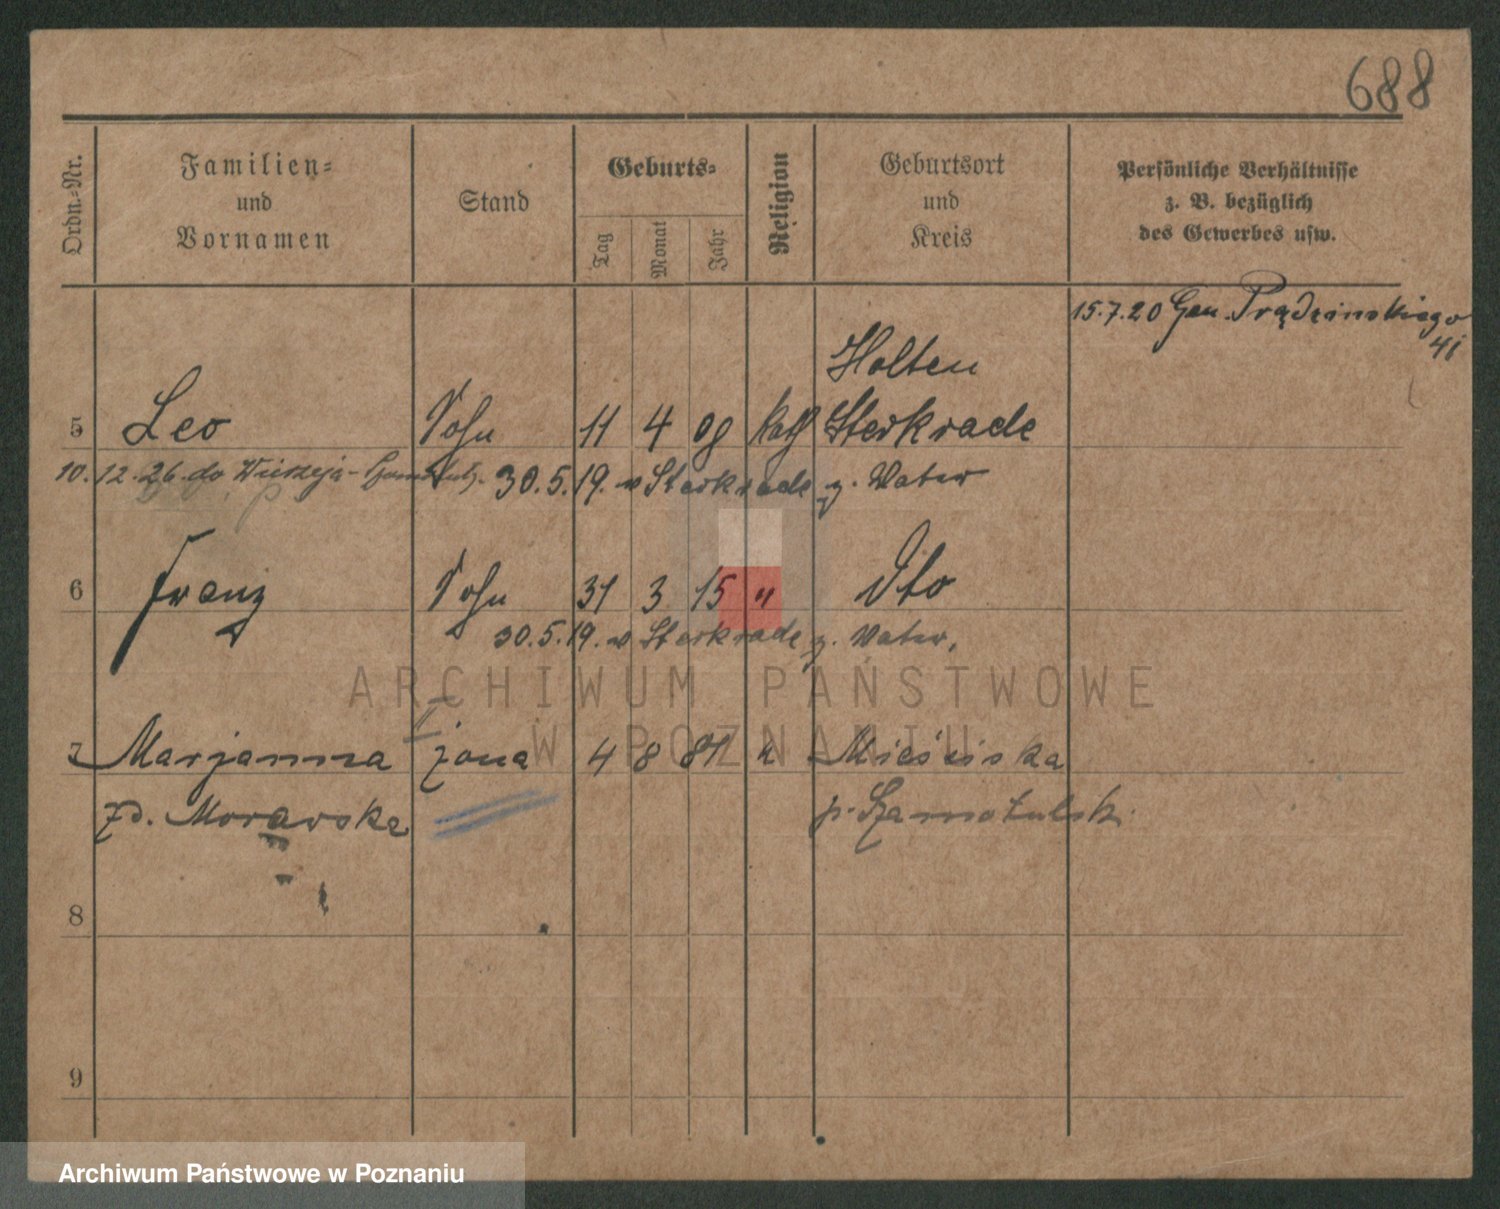 688
Ordn.-Nr.
Familien-
und
Vornamen
Stand
Geburts-
Tag
Monat
Jahr
Religion
Geburtsort
und
Kreis
Persönliche Verhältnisse
z. B. bezüglich
des Gewerbes usw.
15.7.20 Gen. Prądzinskiego
41
Holten
5 Leo Sohn 11 4 09 kath Sterkrade
10.12.26. do 30.5.19. v Sterkrade z. Vater
6 Franz Sohn 31 3 15 " Dto
30.5.19. v Sterkrade z. Vater.
7 Marjanna żona 4 8 81 k Mieściska
zd. Morawska p. Szamotulsk.
8
9
ARCHIWUM PAŃSTWOWE
W POZNANIU
Archiwum Państwowe w Poznaniu